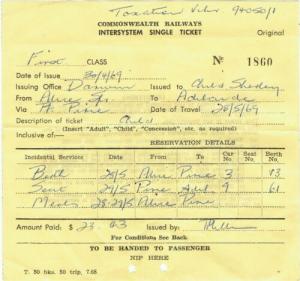 Taxation
COMMONWEALTH RAILWAYS
INTERSYSTEM SINGLE TICKET Original
First CLASS No 1860
Date of Issue 30/4/69
Issuing Office Darwin Issued to Child
From Alice Sp. To Adelaide
Via Pt Pirie Date of Travel 28/5/69
Description of ticket Child
(Insert "Adult", "Child", "Concession", etc. as required)
Inclusive of:—
RESERVATION DETAILS
Incidental Services From To Car No. Seat No. Berth No.
Berth 28/5 Alice Pirie 3 13
Seat 29/5 Pirie Adel 9 61
Meals 28-29/5 Alice Pirie
Amount Paid: $ 23.03 Issued by
For Conditions See Back.
TO BE HANDED TO PASSENGER
NIP HERE
T. 50 bks. 50 trip, 7.68